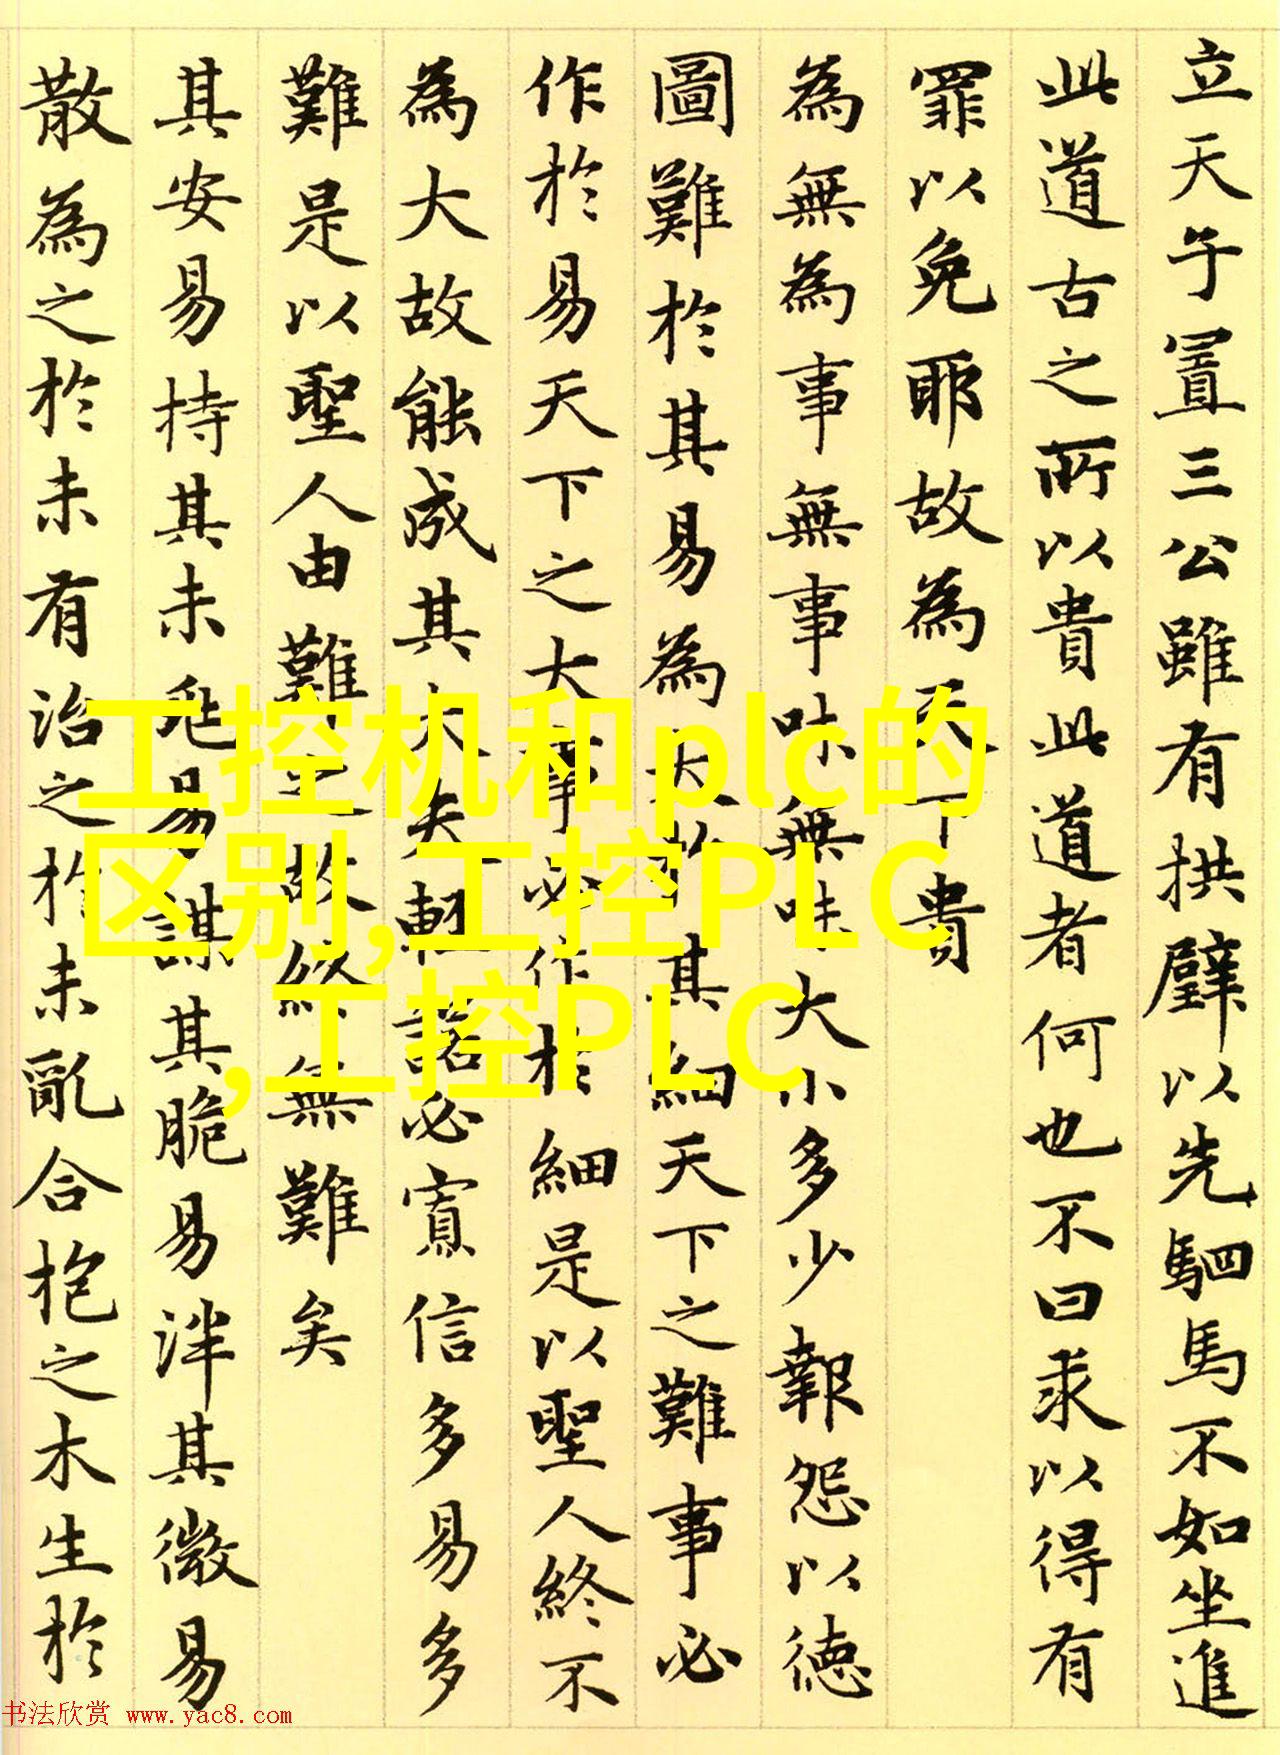 立天子置三公雖有拱璧以先駟馬不如坐進
此道古之所以貴此道者何也不曰求以得有
罪以免耶故為天下貴
為無為事無事味無味大小多少報怨以德
圖難於其易為大於其細天下之難事必
作於易天下之大事必作於細是以聖人終不
為大故能成其大夫輕諾必寡信多易多
難是以聖人由難之故終無難矣
其安易持其未兆易謀其脆易泮其微易
散為之於未有治之於未亂合抱之木生於
工控机和plc的
区别,工控PLC
,工控PLC
书法欣赏 www.yac8.com